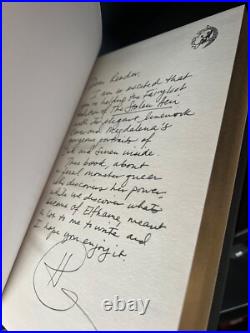 Dear Reader,
I am so excited that
you're holding this Fairyloot
edition of The Stolen Heir
with the elegant linework
and Magdalena's
gorgeous portraits of
and Suren inside.
This book, about
a feral monster queen
who discovers her power,
while we discover what's
become of Elfhame, meant
a lot to me to write and
I hope you enjoy it